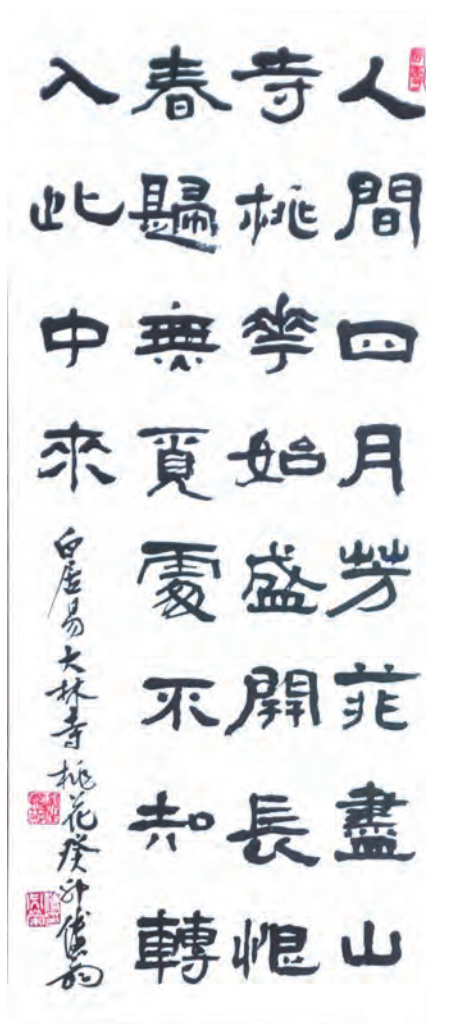 人間四月芳菲盡山
寺桃華始盛開長恨
春歸無覓處不知轉
入此中來
白居易大林寺桃花癸卯